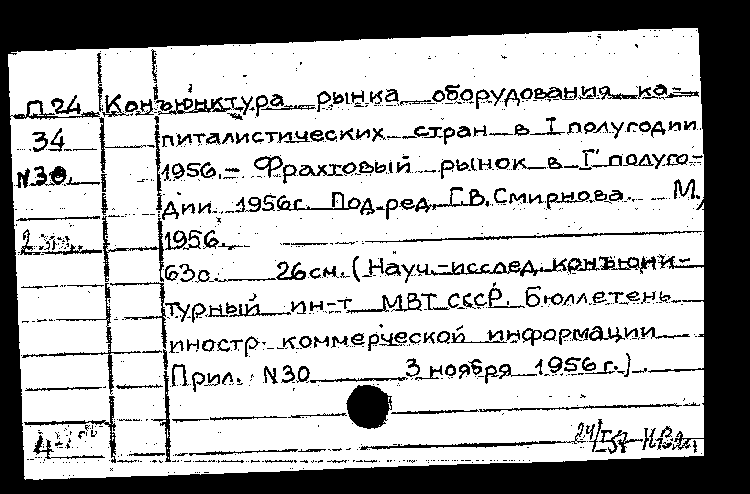 П.24 Конъюнктура рынка оборудования ка-
34 питалистических стран в I полугодии
N30. 1956.- Фрахтовый рынок в I полуго-
дии 1956г. Под.ред. Г.В.Смирнова. М.,
1956.
63с. 26см. (Науч.-исслед. конъюнк-
турный ин-т МВТ СССР. Бюллетень
иностр. коммерческой информации
Прил. N30 3 ноября 1956 г.).
24/I 57